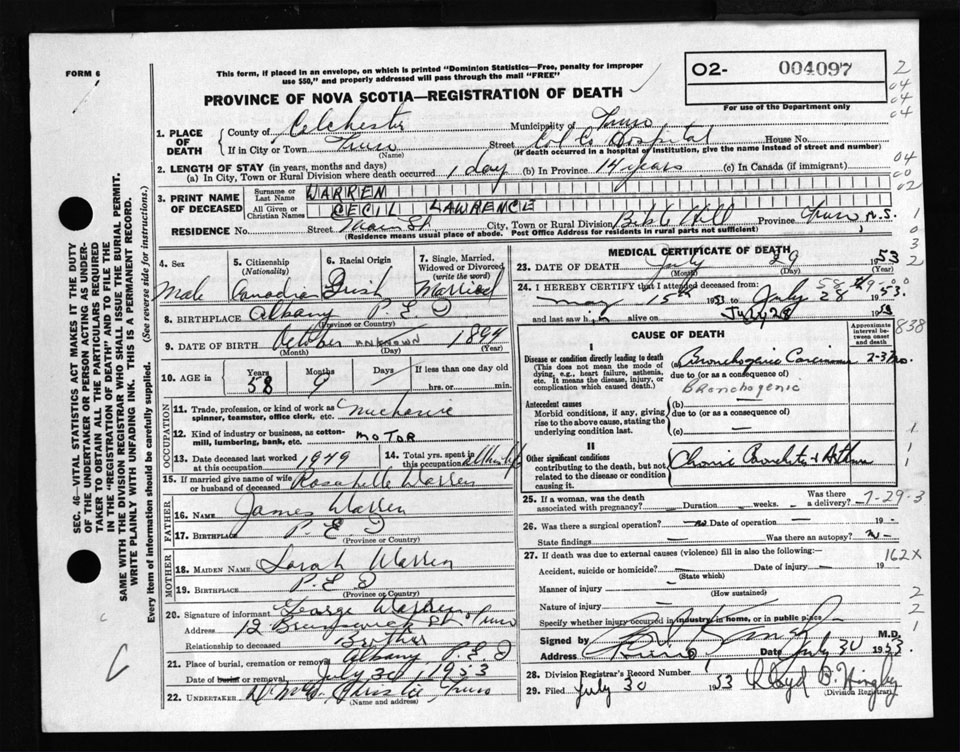 FORM 6
This form, if placed in an envelope, on which is printed "Dominion Statistics—Free, penalty for improper
use $50," and properly addressed will pass through the mail "FREE"
PROVINCE OF NOVA SCOTIA—REGISTRATION OF DEATH
O2- 004097
For use of the Department only
2
04
04
04
1. PLACE OF DEATH
County of Colchester Municipality of Truro
If in City or Town Truro Street Col Co Hospital House No.
(Name) (If death occurred in a hospital of institution, give name instead of street and number)
2. LENGTH OF STAY (in years, months and days)
(a) In City, Town or Rural Division where death occurred 1 day (b) In Province 14 years (c) In Canada (if immigrant)
04
00
02
3. PRINT NAME OF DECEASED
Surname or Last Name WARREN
All Given or Christian Names CECIL LAWRENCE
RESIDENCE No. Street Main St. City, Town or Rural Division Bible Hill Province Truro N.S.
(Residence means usual place of abode. Post Office Address for residents in rural parts not sufficient)
1
0
3
2
4. Sex
Male
5. Citizenship
(Nationality)
Canadian
6. Racial Origin
Irish
7. Single, Married,
Widowed or Divorced
(write the word)
Married
8. BIRTHPLACE Albany P E I
(Province or Country)
9. DATE OF BIRTH October UNKNOWN 1894
(Month) (Day) (Year)
10. AGE in Years 58 Months 9 Days If less than one day old
hrs. or min.
OCCUPATION
11. Trade, profession, or kind of work as
spinner, teamster, office clerk, etc. Mechanic
12. Kind of industry or business, as cotton-
mill, lumbering, bank, etc. MOTOR
13. Date deceased last worked
at this occupation 1949
14. Total yrs. spent in
this occupation
15. If married give name of wife
or husband of deceased Rosabelle Warren
FATHER
16. NAME James Warren
17. BIRTHPLACE P. E. I
(Province or Country)
MOTHER
18. MAIDEN NAME Sarah Warren
19. BIRTHPLACE P. E. I
(Province or Country)
20. Signature of informant George Warren
Address 12 Brunswick St Truro
Relationship to deceased Brother
21. Place of burial, cremation or removal Albany P.E.I
Date of burial or removal, July 30, 1953
22. UNDERTAKER Christie Truro
(Name and address)
MEDICAL CERTIFICATE OF DEATH
23. DATE OF DEATH July 29 1953
(Month) (Day) (Year)
24. I HEREBY CERTIFY that I attended deceased from:
May 15th 1953 to July 28 1953.
and last saw him alive on July 28 1953
CAUSE OF DEATH
Approximate
interval be-
tween onset
and death
838
I
Disease or condition directly leading to death
(This does not mean the mode of
dying, e.g., heart failure, asthenia,
etc. It means the disease, injury, or
complication which caused death.)
(a) Bronchogenic Carcinoma 2-3 mo.
due to (or as a consequence of)
Bronchogenic
Antecedent causes
Morbid conditions, if any, giving
rise to the above cause, stating the
underlying condition last.
(b)
due to (or as a consequence of)
(c) —
II
Other significant conditions
contributing to the death, but not
related to the disease or condition
causing it.
Chronic Bronchitis & Asthma
1
1
1
25. If a woman, was the death
associated with pregnancy? Duration — weeks. Was there
a delivery?
7-29-3
26. Was there a surgical operation? — no Date of operation — 19 -
State findings — Was there an autopsy?
27. If death was due to external causes (violence) fill in also the following:—
162X
Accident, suicide or homicide? Date of injury — 19
(State which)
Manner of injury —
(How sustained)
Nature of injury —
Specify whether injury occurred in industry, in home, or in public place
2
2
1
Signed by M.D.
Address Truro Date July 30 1953.
28. Division Registrar's Record Number
29. Filed July 30 1953 Lloyd B.
(Division Registrar)
SEC. 46—VITAL STATISTICS ACT MAKES IT THE DUTY
OF THE UNDERTAKER OR PERSON ACTING AS UNDER-
TAKER TO OBTAIN ALL THE PARTICULARS REQUIRED
IN THE "REGISTRATION OF DEATH" AND TO FILE THE
SAME WITH THE DIVISION REGISTRAR WHO SHALL ISSUE THE BURIAL PERMIT.
WRITE PLAINLY WITH UNFADING INK. THIS IS A PERMANENT RECORD.
Every item of information should be carefully supplied. (See reverse side for instructions.)